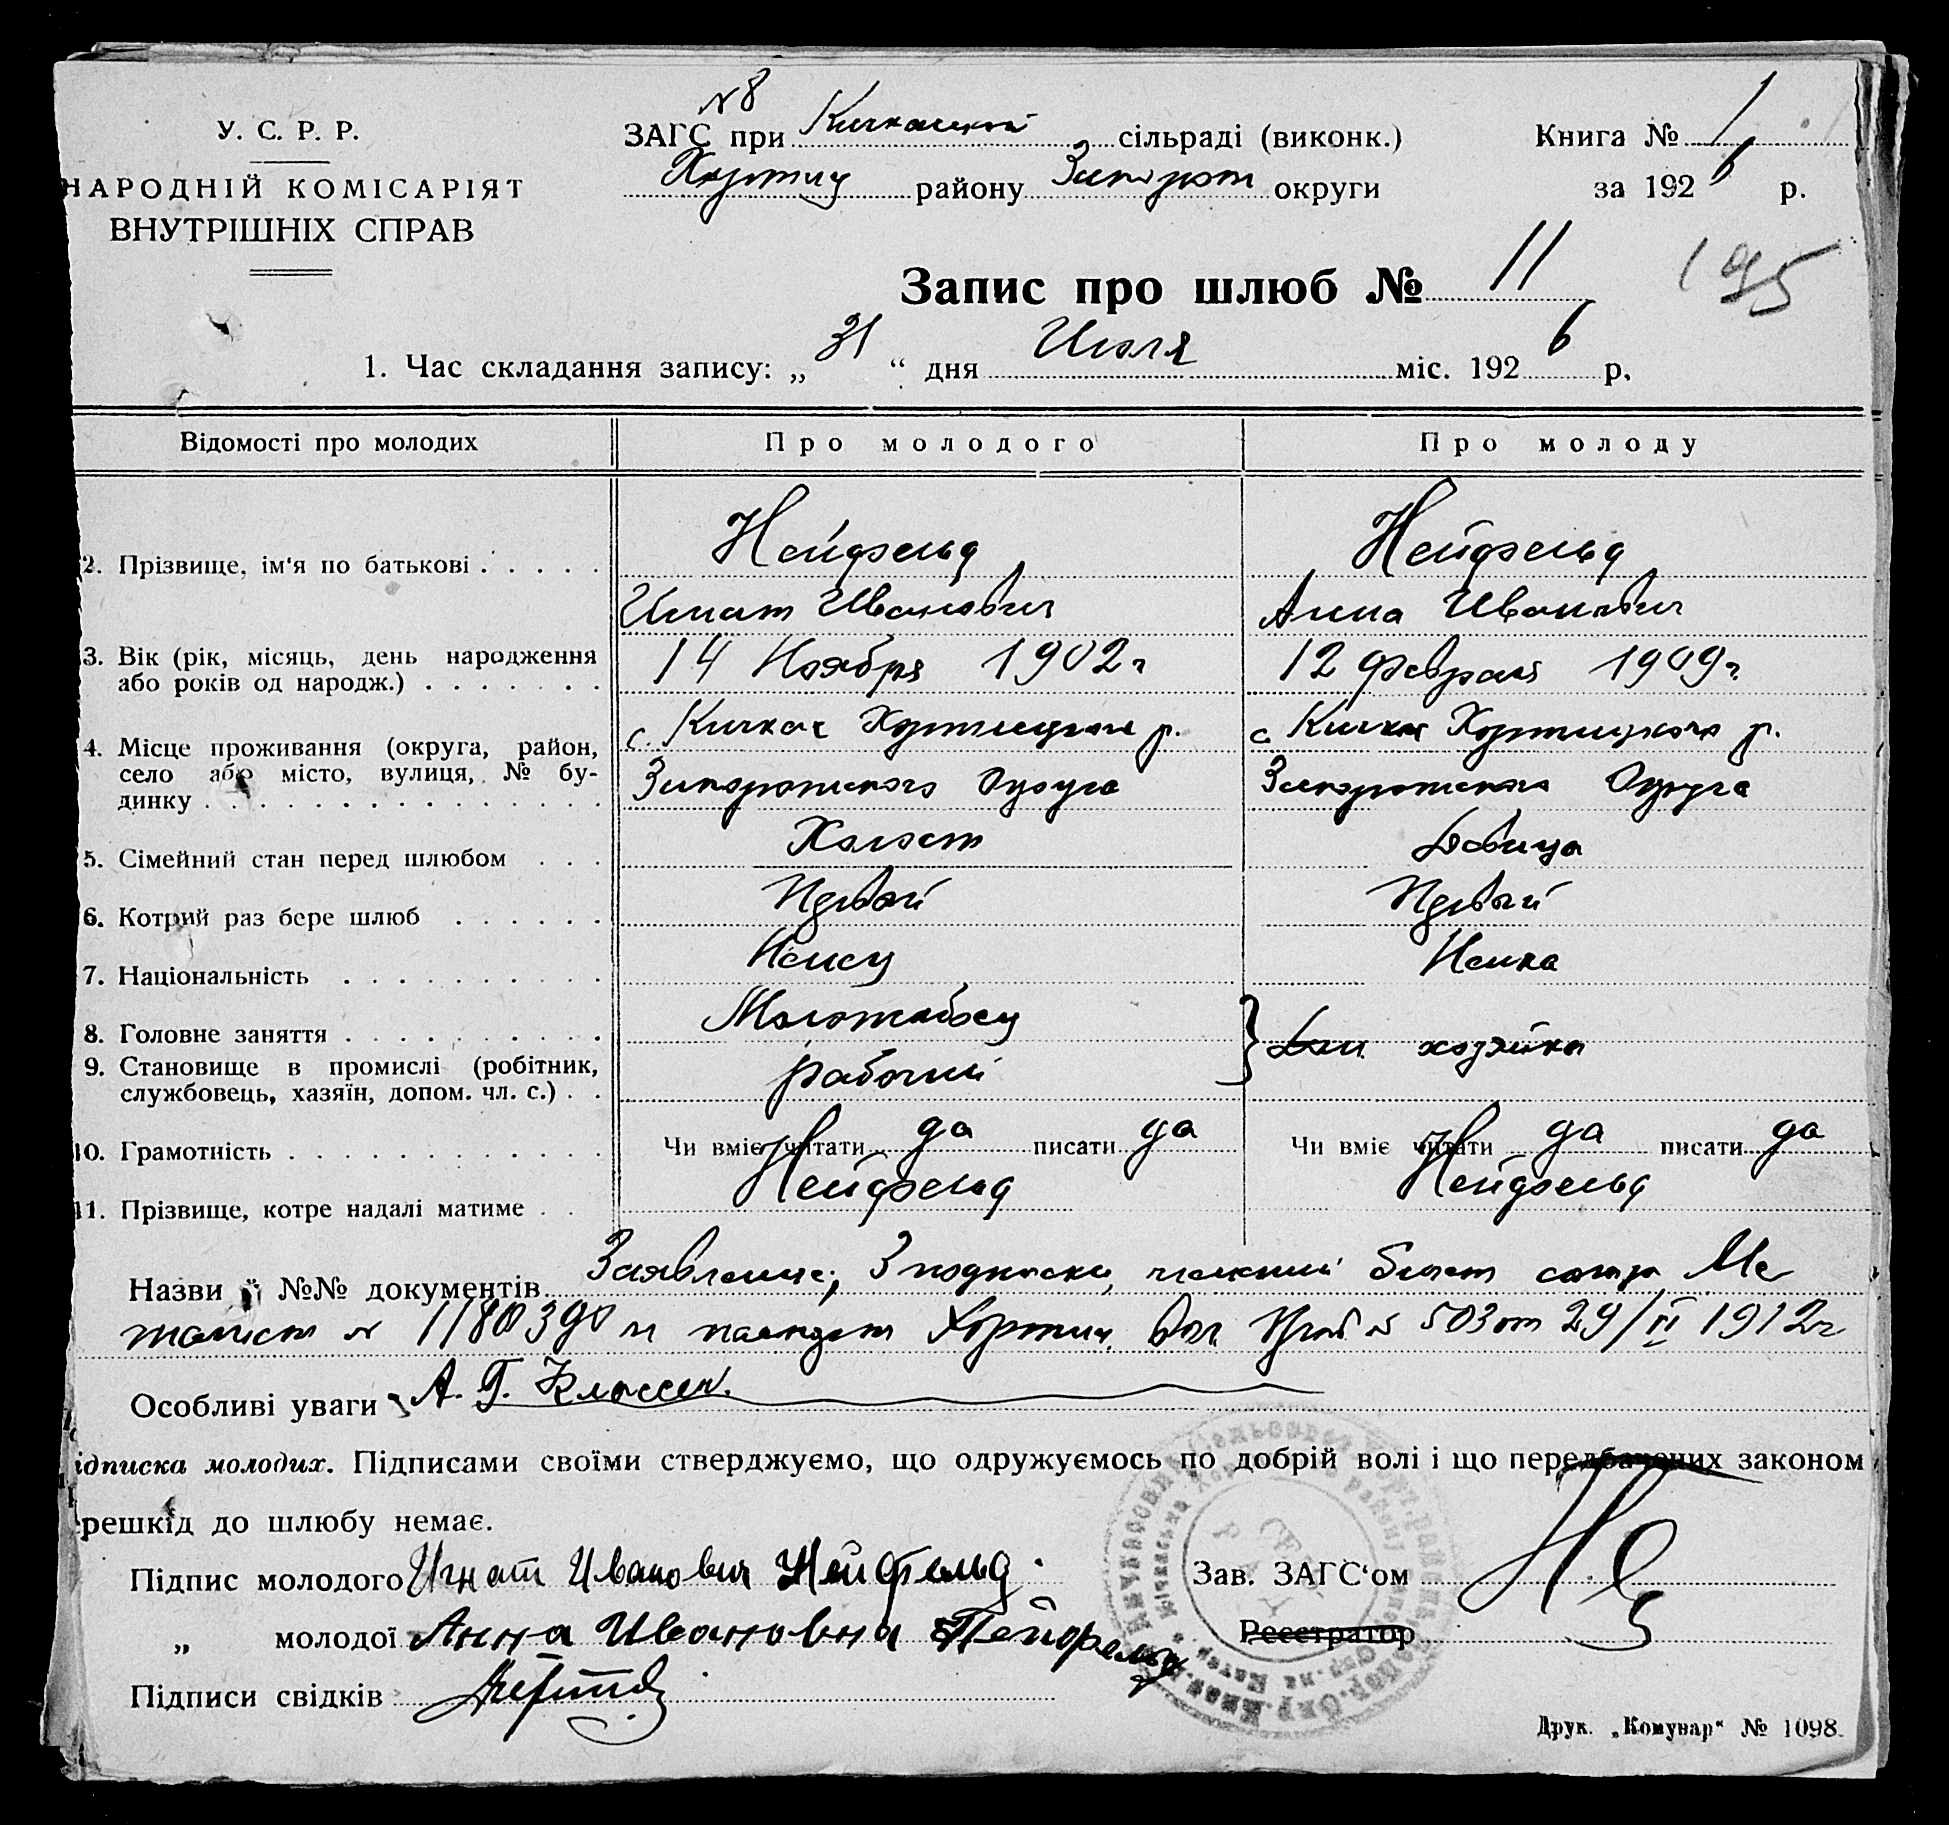 № 8
У. С. Р. Р.
НАРОДНІЙ КОМІСАРІЯТ
ВНУТРІШНІХ СПРАВ
ЗАГС при Кичкасской сільраді (виконк.)
Хортиц району Запорож округи
Книга № 1
за 1926 р.
Запис про шлюб № 11
195
1. Час складання запису: „31“ дня Июля міс. 1926 р.
Відомості про молодих Про молодого Про молоду
2. Прізвище, ім'я по батькові Нейфельд Нейфельд
Игнат Иванович Анна Иванович
3. Вік (рік, місяць, день народження 14 Ноября 1902 г 12 февраля 1909 г.
або років од народж.)
4. Місце проживання (округа, район, с. Кичкас Хортицкого р. с Кичкас Хортицкого р.
село або місто, вулиця, № бу- Запорожского Округа Запорожского Округа
динку
5. Сімейний стан перед шлюбом Холост Девица
6. Котрий раз бере шлюб Первый Первый
7. Національність Немец Немка
8. Головне заняття Молотобоец Дом. хозяйка
9. Становище в промислі (робітник, рабочий
службовець, хазяїн, допом. чл. с.)
10. Грамотність Чи вміє читати да писати да Чи вміє читати да писати да
11. Прізвище, котре надалі матиме Нейфельд Нейфельд
Назви й №№ документів Заявление, 3 подписки, членский билет союза Ме
талист № 1180390 и паспорт Хортиц. Вол Прав № 503 от 29/II 1912 г
Особливі уваги А. Г. Классен.
ідписка молодих. Підписами своїми стверджуємо, що одружуємось по добрій волі і що передбачених законом
решкід до шлюбу немає.
Підпис молодого Игнат Иванович Нейфельд.
„ молодої Анна Ивановна Нейфельд
Підписи свідків
Зав. ЗАГС'ом
Реєстратор
Друк. „Комунар“ № 1098.